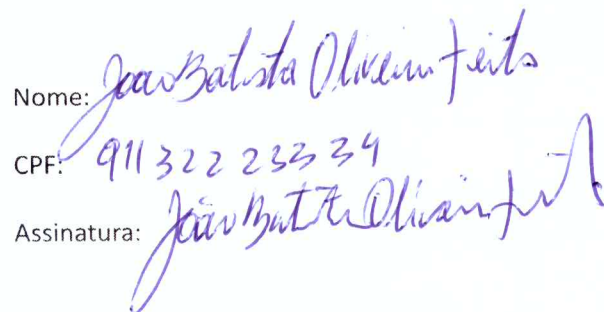 Nome: João Batista Oliveira Feito
CPF: 911 322 233 34
Assinatura: João Batista Oliveira